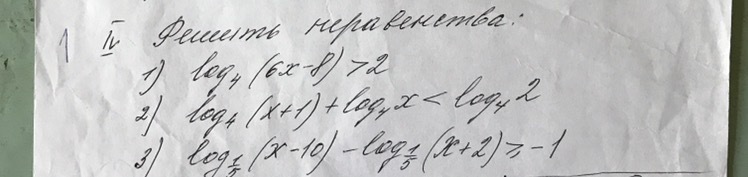 1 IV Решить неравенства:
1) log₄(6x-8)>2
2) log₄(x+1)+log₄x<log₄2
3) log_{1/5}(x-10)-log_{1/5}(x+2)≥-1